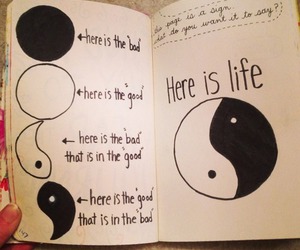 here is the "bad"
here is the "good"
here is the "bad"
that is in the "good"
here is the "good"
that is in the "bad"
page is a sign.
do you want it to say?
Here is life